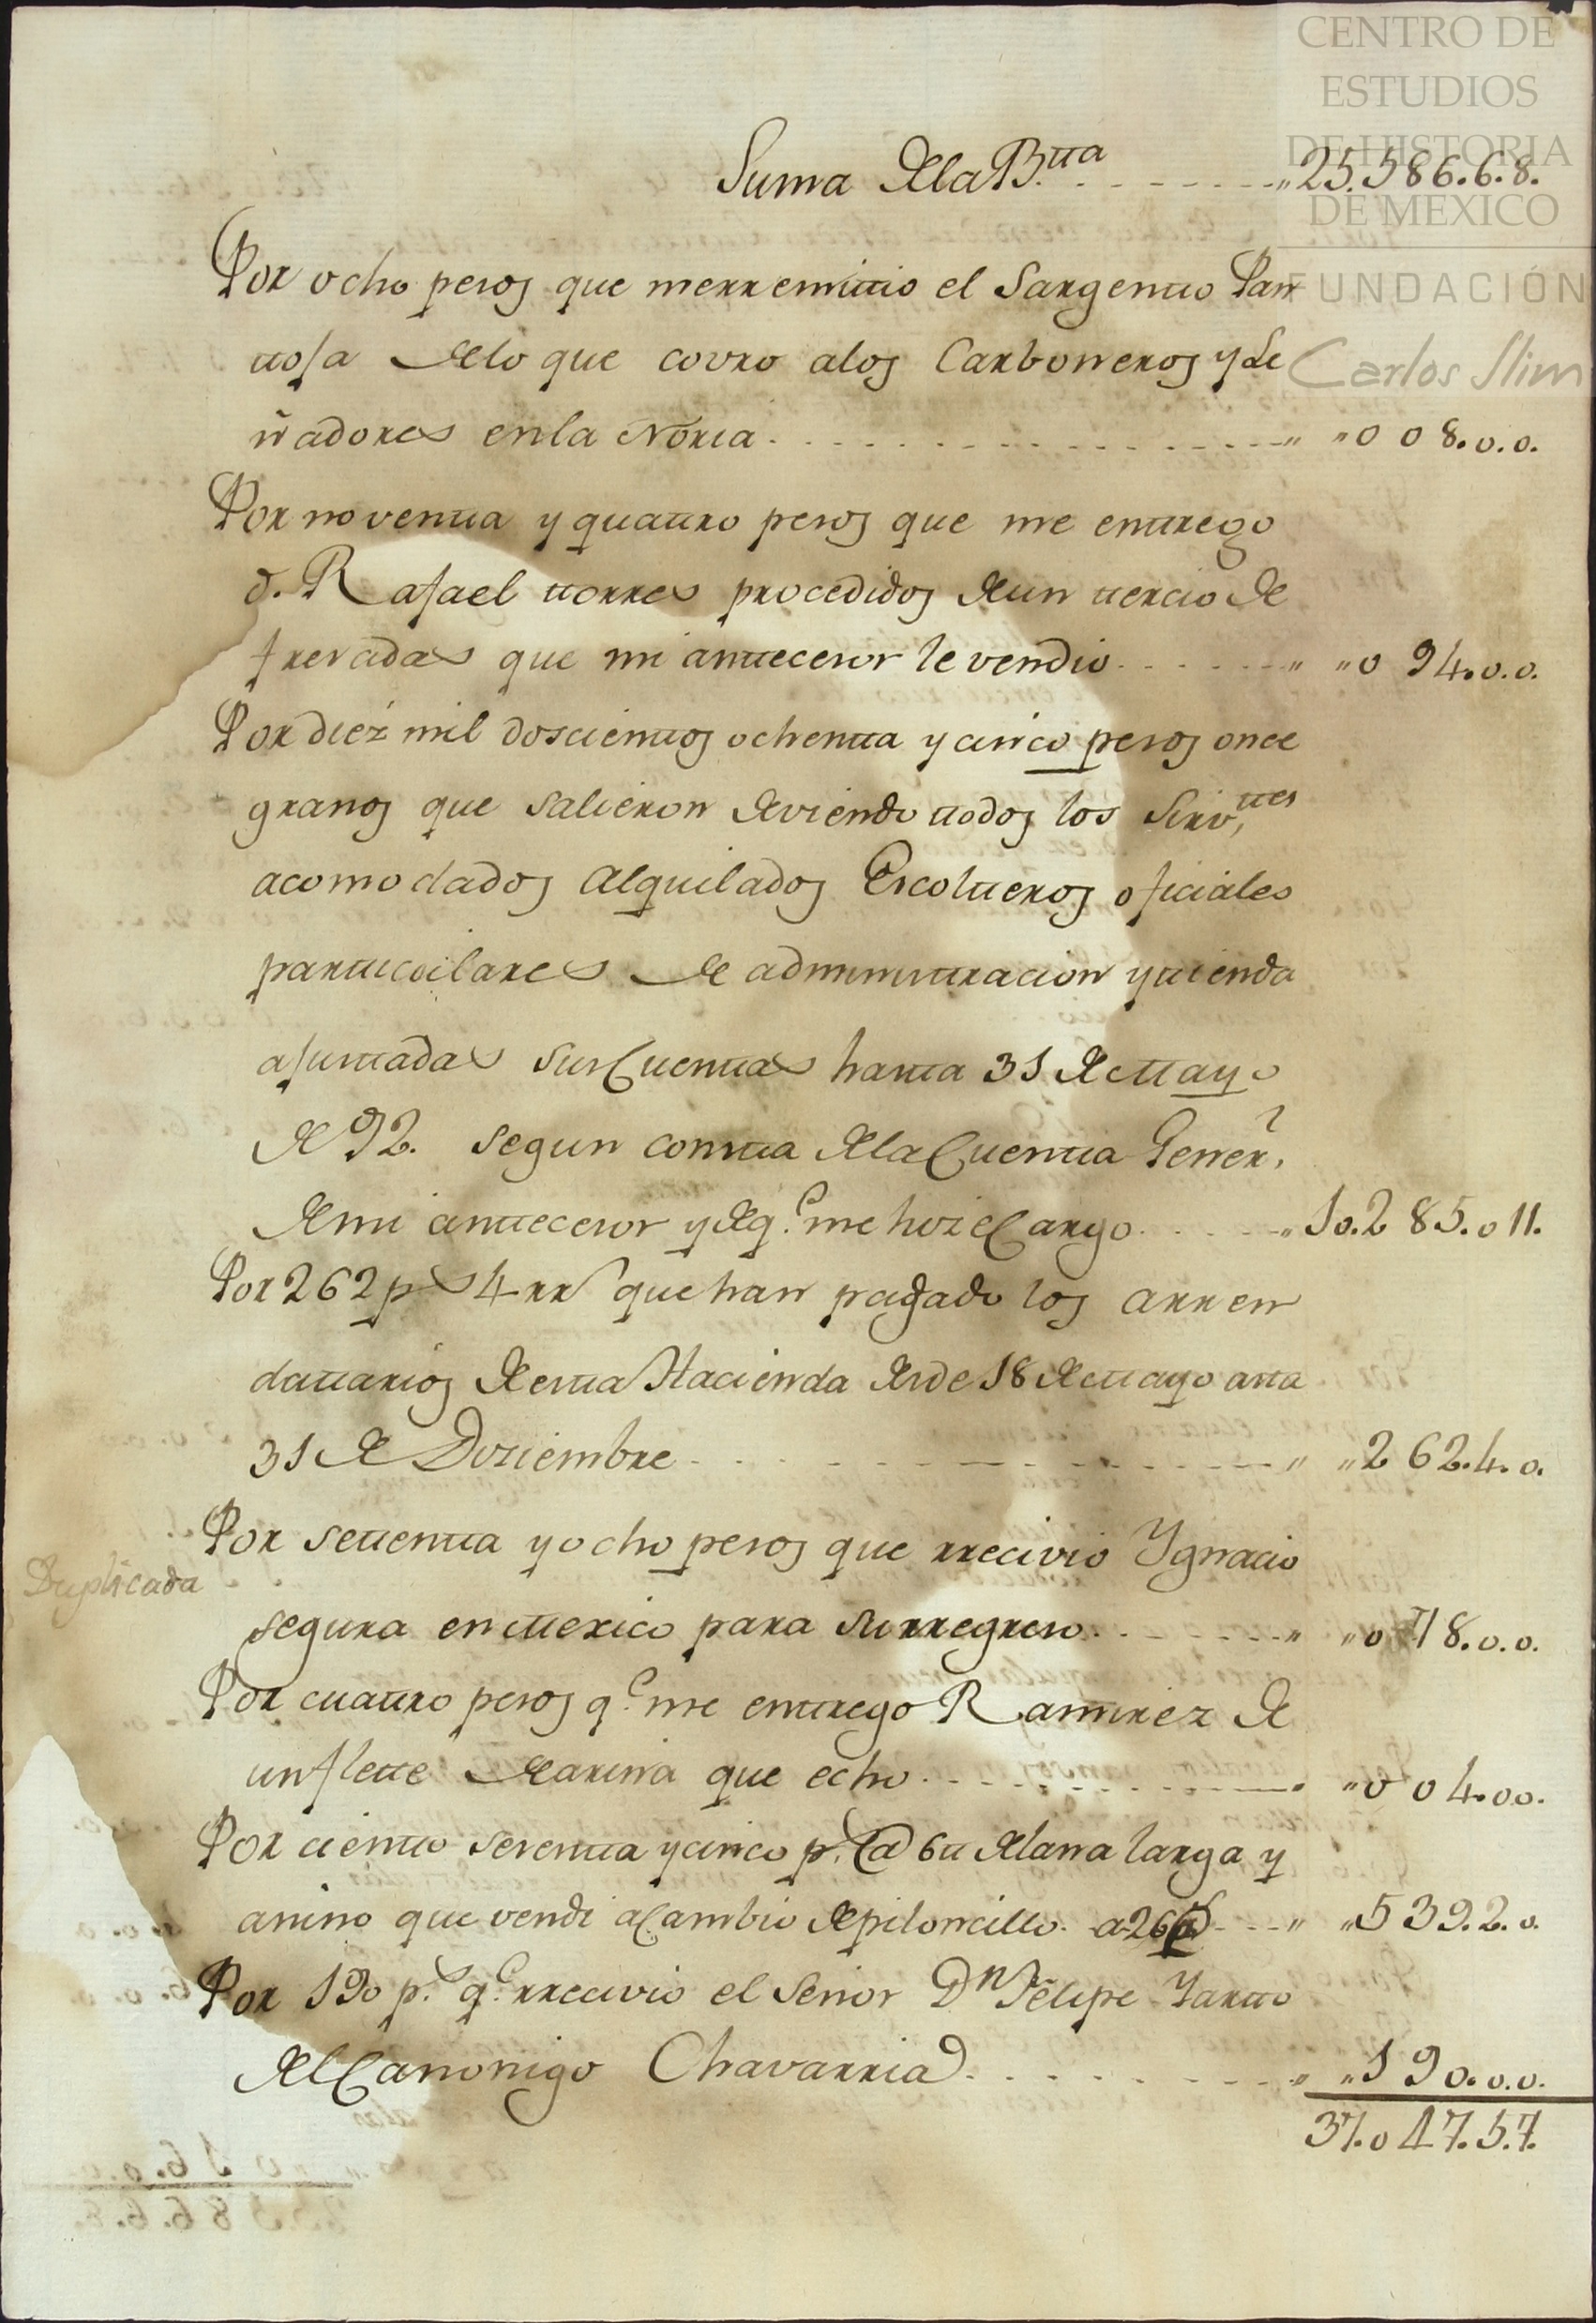 CENTRO DE
ESTUDIOS
DE HISTORIA
DE MEXICO
FUNDACIÓN
Carlos Slim
Suma de la B.tta ,, 25.586.6.8.
Por ocho pesos que merremitio el Sargento Pan
tosa de lo que covro alos Carboneros y Le
ñadores en la Noria ,, ,, 0 0 8.0.0.
Por noventa y quatro pesos que me entrego
d. Rafael torres procedidos de un tercio de
fresadas que mi antecesor le vendio ,, ,, 0 94.0.0.
Por diez mil doscientos ochenta y cinco pesos once
granos que salieron deviendo todos los Sirv.tes
acomodados Alquilados Escolteros oficiales
particulares de administracion y tienda
ajustadas sus Cuentas hasta 31 de Mayo
de 92. segun consta de la Cuenta Gener.l
de mi antecesor y de q.e me hize Cargo ,, 10.2 85.0 11.
Por 262 p.s 4 rr.s que han pagado los arren
datarios de esta Hacienda desde 18 de Mayo asta
31 de Diziembre ,, ,, 2 62.4.0.
Por setenta y ocho pesos que rrecivio Ygnacio
Duplicada
segura en Mexico para su rregreso ,, ,, 0 78.0.0.
Por cuatro pesos q.e me entrego Ramirez de
un flete de arina que echo ,, 0 0 4.0 0.
Por ciento setenta y cinco p.s @ 6 tt de lana larga y
anino que vendi a Cambio de piloncillo a 26 ,, ,, 5 39.2.0.
Por 190 p.s q.e rrecivio el Señor D.n Felipe Yartto
del Canonigo Chavarria ,, ,, 1 9 0.0.0.
37.0 47.5.7.